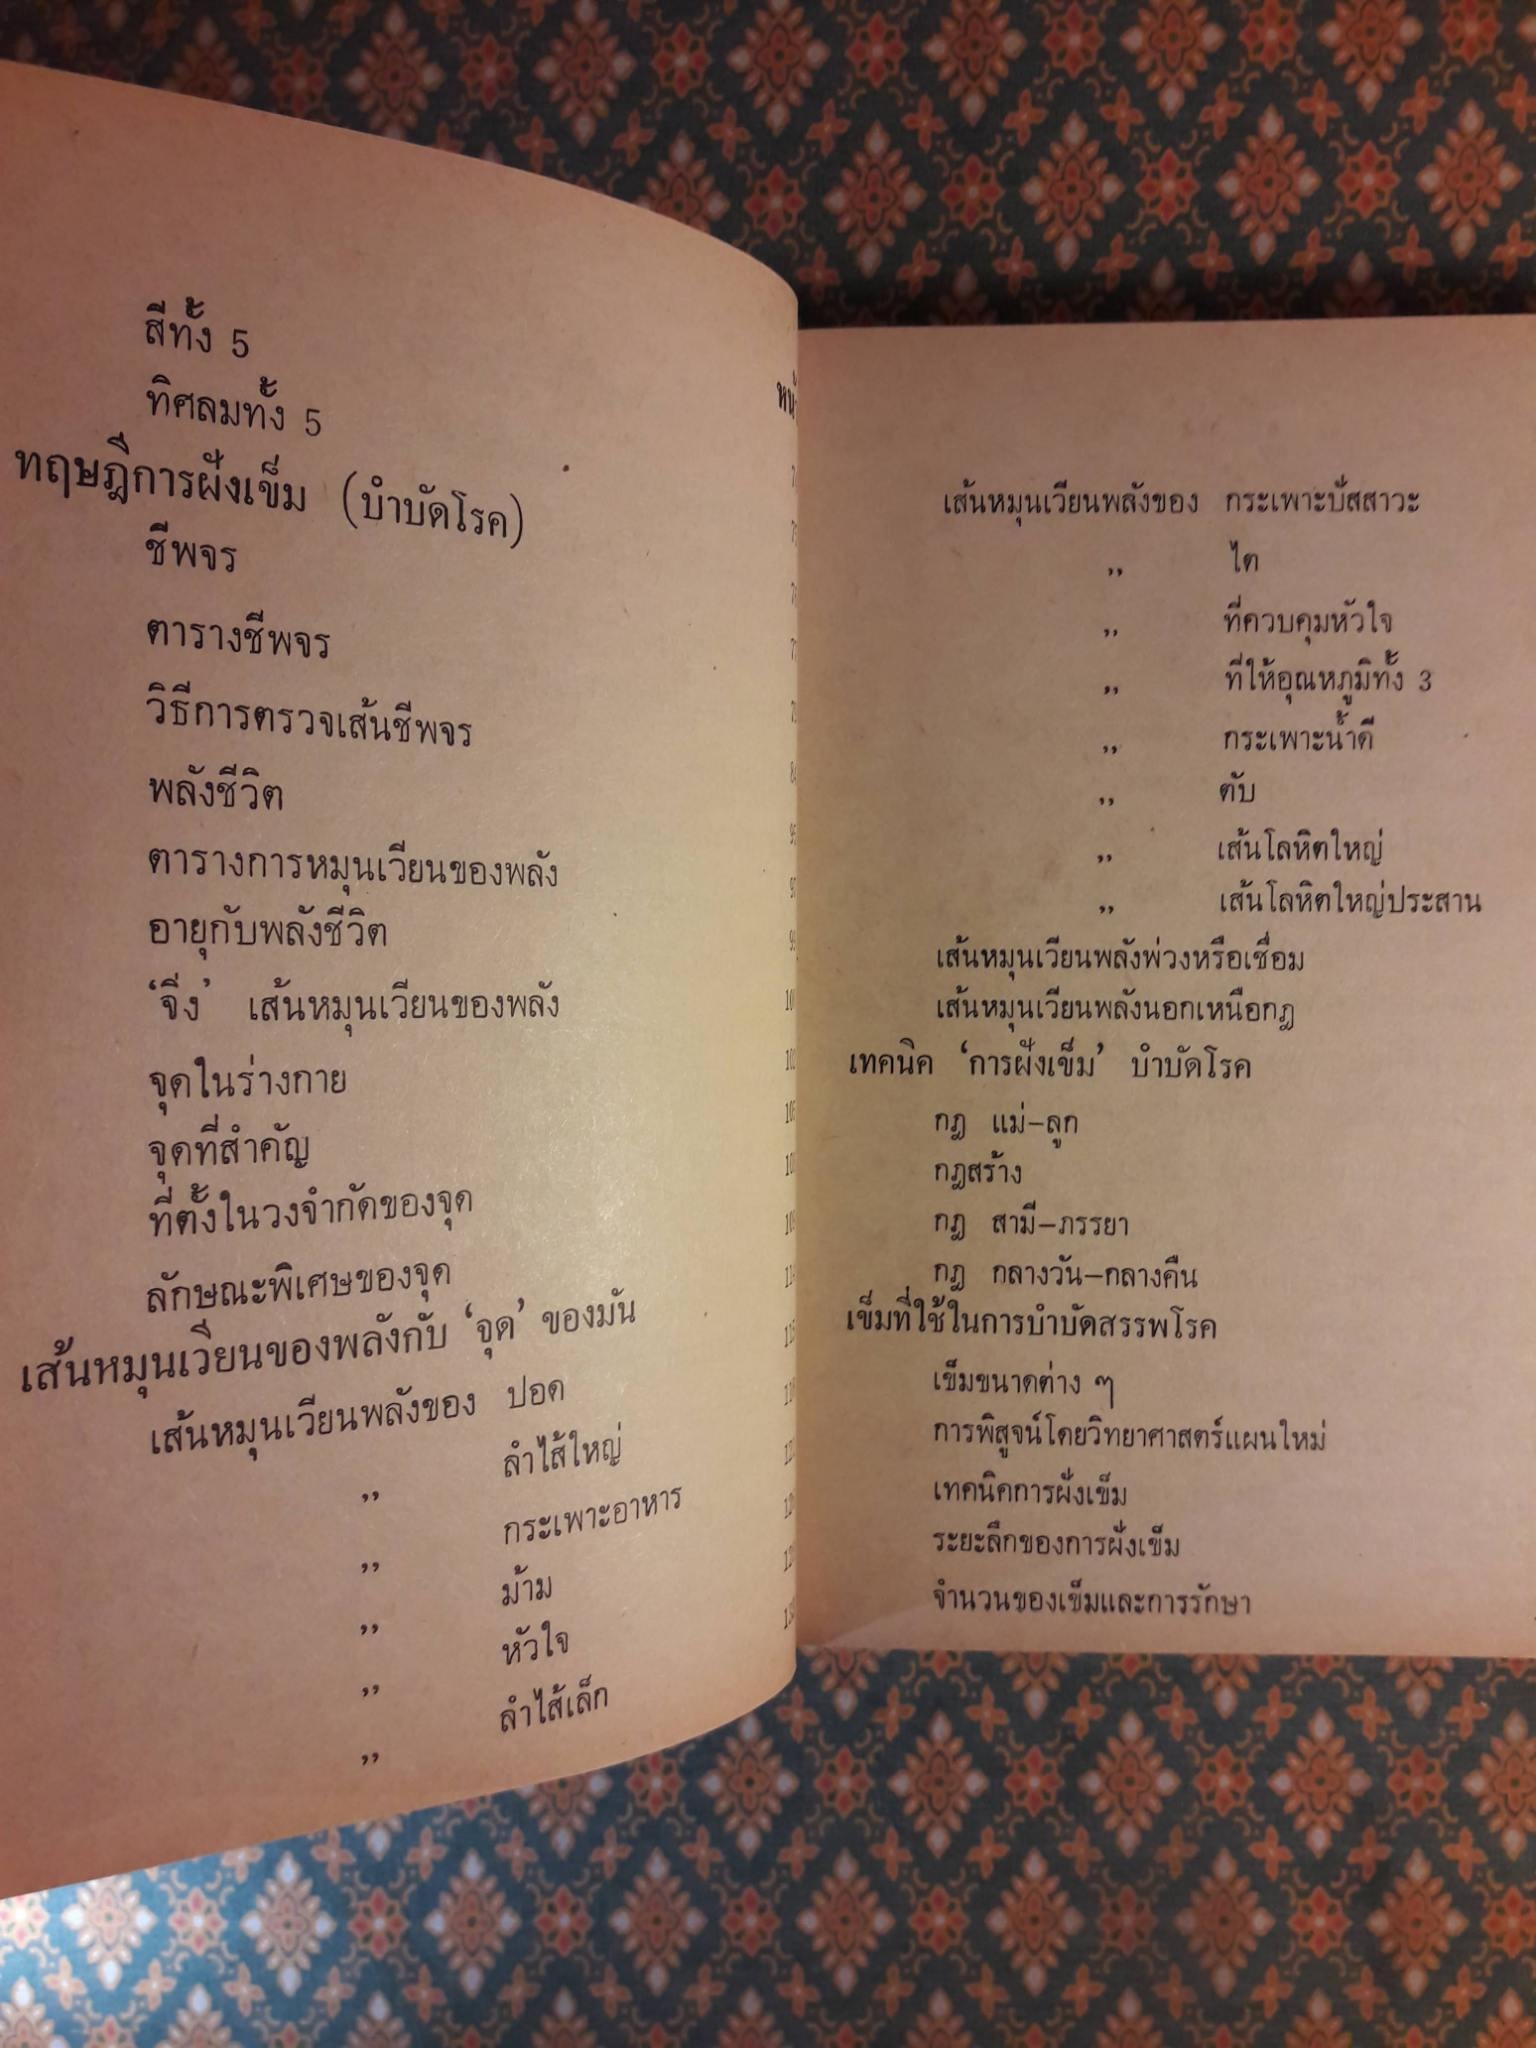 สีทั้ง 5
ทิศลมทั้ง 5
ทฤษฎีการฝังเข็ม (บำบัดโรค)
ชีพจร
ตารางชีพจร
วิธีการตรวจเส้นชีพจร
พลังชีวิต
ตารางการหมุนเวียนของพลัง
อายุกับพลังชีวิต
‘จีง’ เส้นหมุนเวียนของพลัง
จุดในร่างกาย
จุดที่สำคัญ
ที่ตั้งในวงจำกัดของจุด
ลักษณะพิเศษของจุด
เส้นหมุนเวียนของพลังกับ ‘จุด’ ของมัน
เส้นหมุนเวียนพลังของ ปอด
,, ลำไส้ใหญ่
,, กระเพาะอาหาร
,, ม้าม
,, หัวใจ
,, ลำไส้เล็ก
เส้นหมุนเวียนพลังของ กระเพาะปัสสาวะ
,, ไต
,, ที่ควบคุมหัวใจ
,, ที่ให้อุณหภูมิทั้ง 3
,, กระเพาะน้ำดี
,, ตับ
,, เส้นโลหิตใหญ่
,, เส้นโลหิตใหญ่ประสาน
เส้นหมุนเวียนพลังพ่วงหรือเชื่อม
เส้นหมุนเวียนพลังนอกเหนือกฎ
เทคนิค ‘การฝังเข็ม’ บำบัดโรค
กฎ แม่-ลูก
กฎสร้าง
กฎ สามี-ภรรยา
กฎ กลางวัน-กลางคืน
เข็มที่ใช้ในการบำบัดสรรพโรค
เข็มขนาดต่าง ๆ
การพิสูจน์โดยวิทยาศาสตร์แผนใหม่
เทคนิคการฝังเข็ม
ระยะลึกของการฝังเข็ม
จำนวนของเข็มและการรักษา